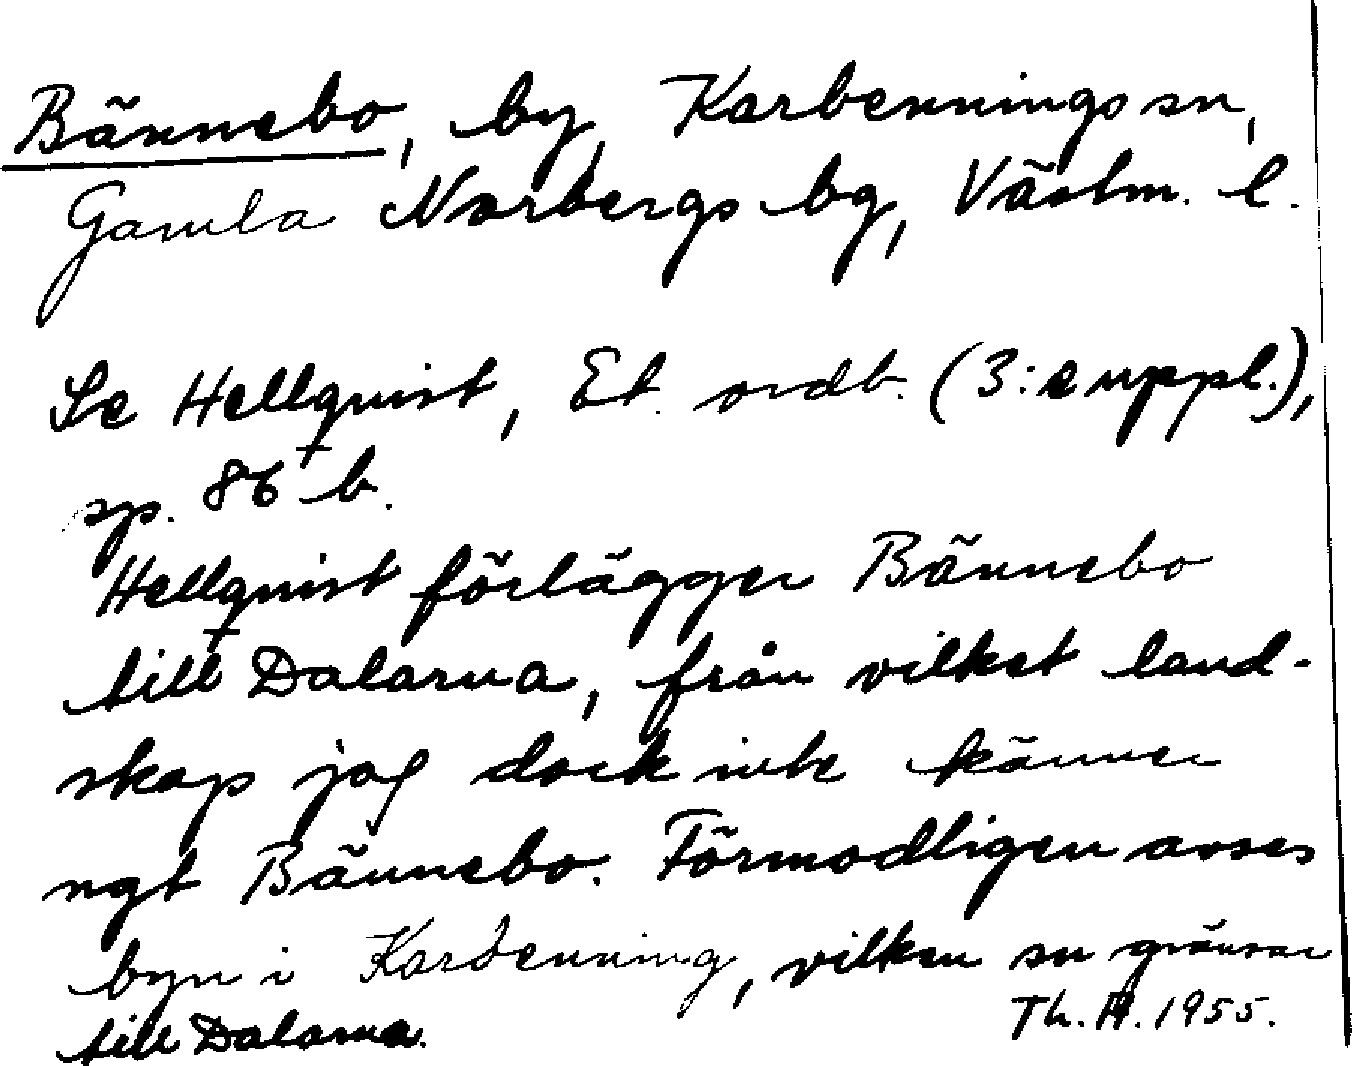 Bännebo, by, Karbennings sn,
Gamla Norbergs bg, Västm. l.
Se Hellquist, Et. ordb. (3:e uppl.),
sp. 86 b.
Hellquist förlägger Bännebo
till Dalarna, från vilket land-
skap jag dock inte känner
ngt Bännebo. Förmodligen avses
byn i Karbenning, vilken sn gränsar
till Dalarna.
Th. H. 1955.